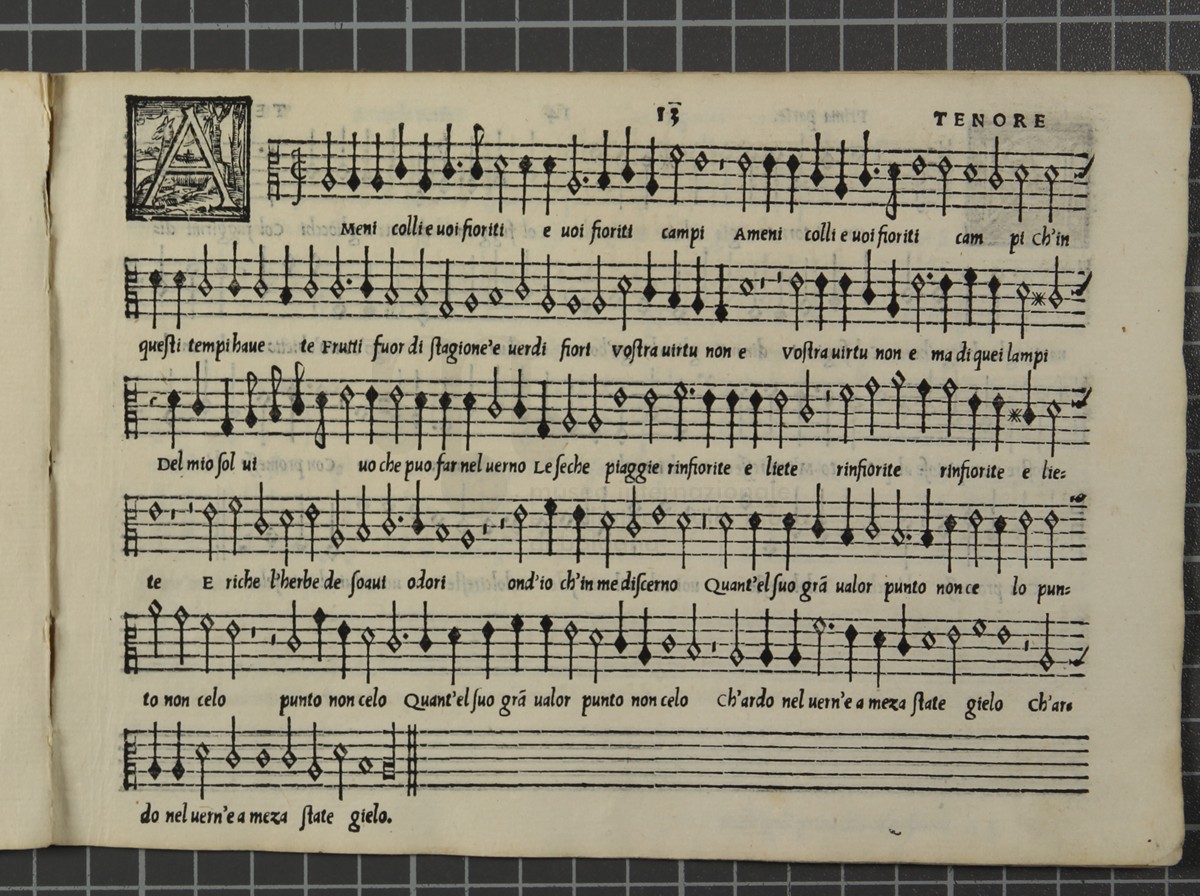 13
TENORE
AMeni colli e uoi fioriti e uoi fioriti campi Ameni colli e uoi fioriti cam pi Ch'in
queſti tempi haue te Frutti fuor di ſtagione'e uerdi fiori Voſtra uirtu non e Voſtra uirtu non e ma di quei lampi
Del mio ſol ui uo che puo far nel uerno Le ſeche piaggie rinfiorite e liete rinfiorite rinfiorite e lie=
te E riche l'herbe de ſoaui odori ond'io ch'in me diſcerno Quant'el ſuo grã ualor punto non ce lo pun=
to non celo punto non celo Quant'el ſuo grã ualor punto non celo Ch'ardo nel uern'e a meza ſtate gielo Ch'ar=
do nel uern'e a meza ſtate gielo.